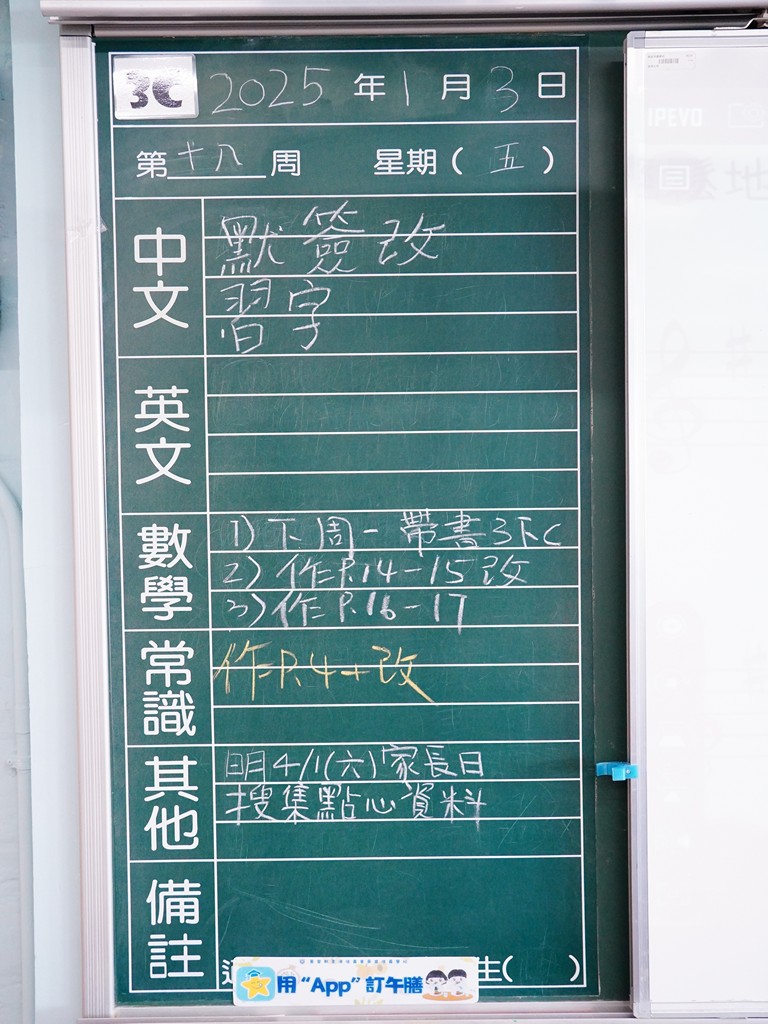 3C 2025年1月3日
第十八周 星期(五)
中文
默簽改
習字
英文
數學
1) 下周一帶書3下C
2) 作P.14-15改
3) 作P.16-17
常識
作P.4+改
其他
明4/1(六)家長日
搜集點心資料
備註
生( )
用“App”訂午膳
IPEVO